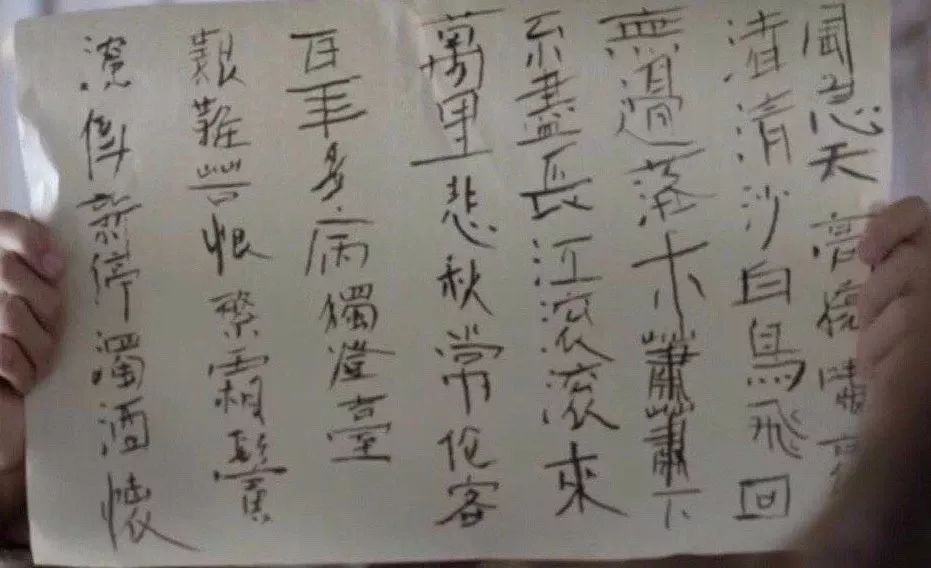 急天高猿嘯哀
渚清沙白鳥飛回
無邊落木蕭蕭下
不盡長江滾滾來
萬里悲秋常作客
百年多病獨澄臺
艱難苦恨繁霜鬢
潦倒新停濁酒